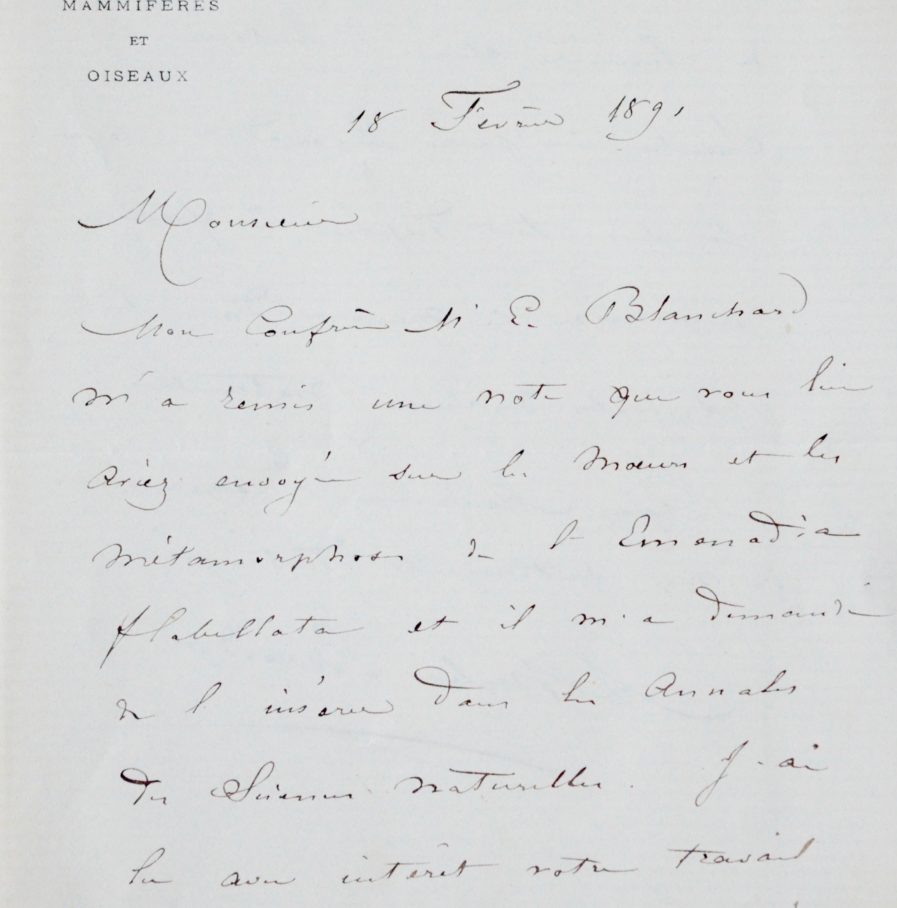 MAMMIFÈRES
ET
OISEAUX
18 Février 1891
Monsieur
Mon Confrère Mr E. Blanchard
m'a remis une note que vous lui
aviez envoyée sur les Mœurs et les
métamorphoses de l'Emenadia
flabellata et il m'a demandé
de l'insérer dans les Annales
des Sciences naturelles. J'ai
lu avec intérêt votre travail